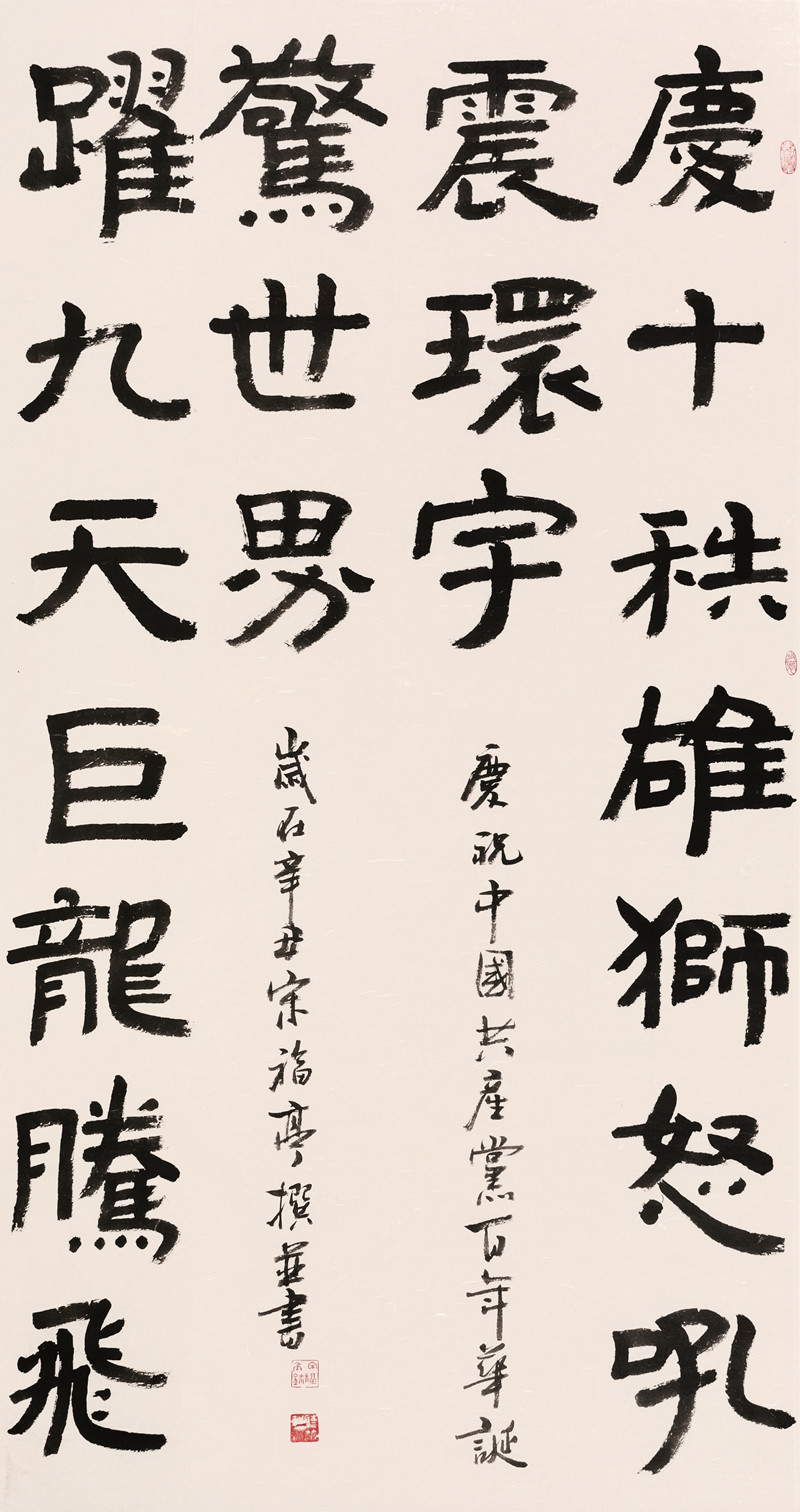 慶十秩雄獅怒吼
震環宇
慶祝中國共産黨百年華誕
躍九天巨龍騰飛
驚世界
歲在辛丑宋福亭撰並書